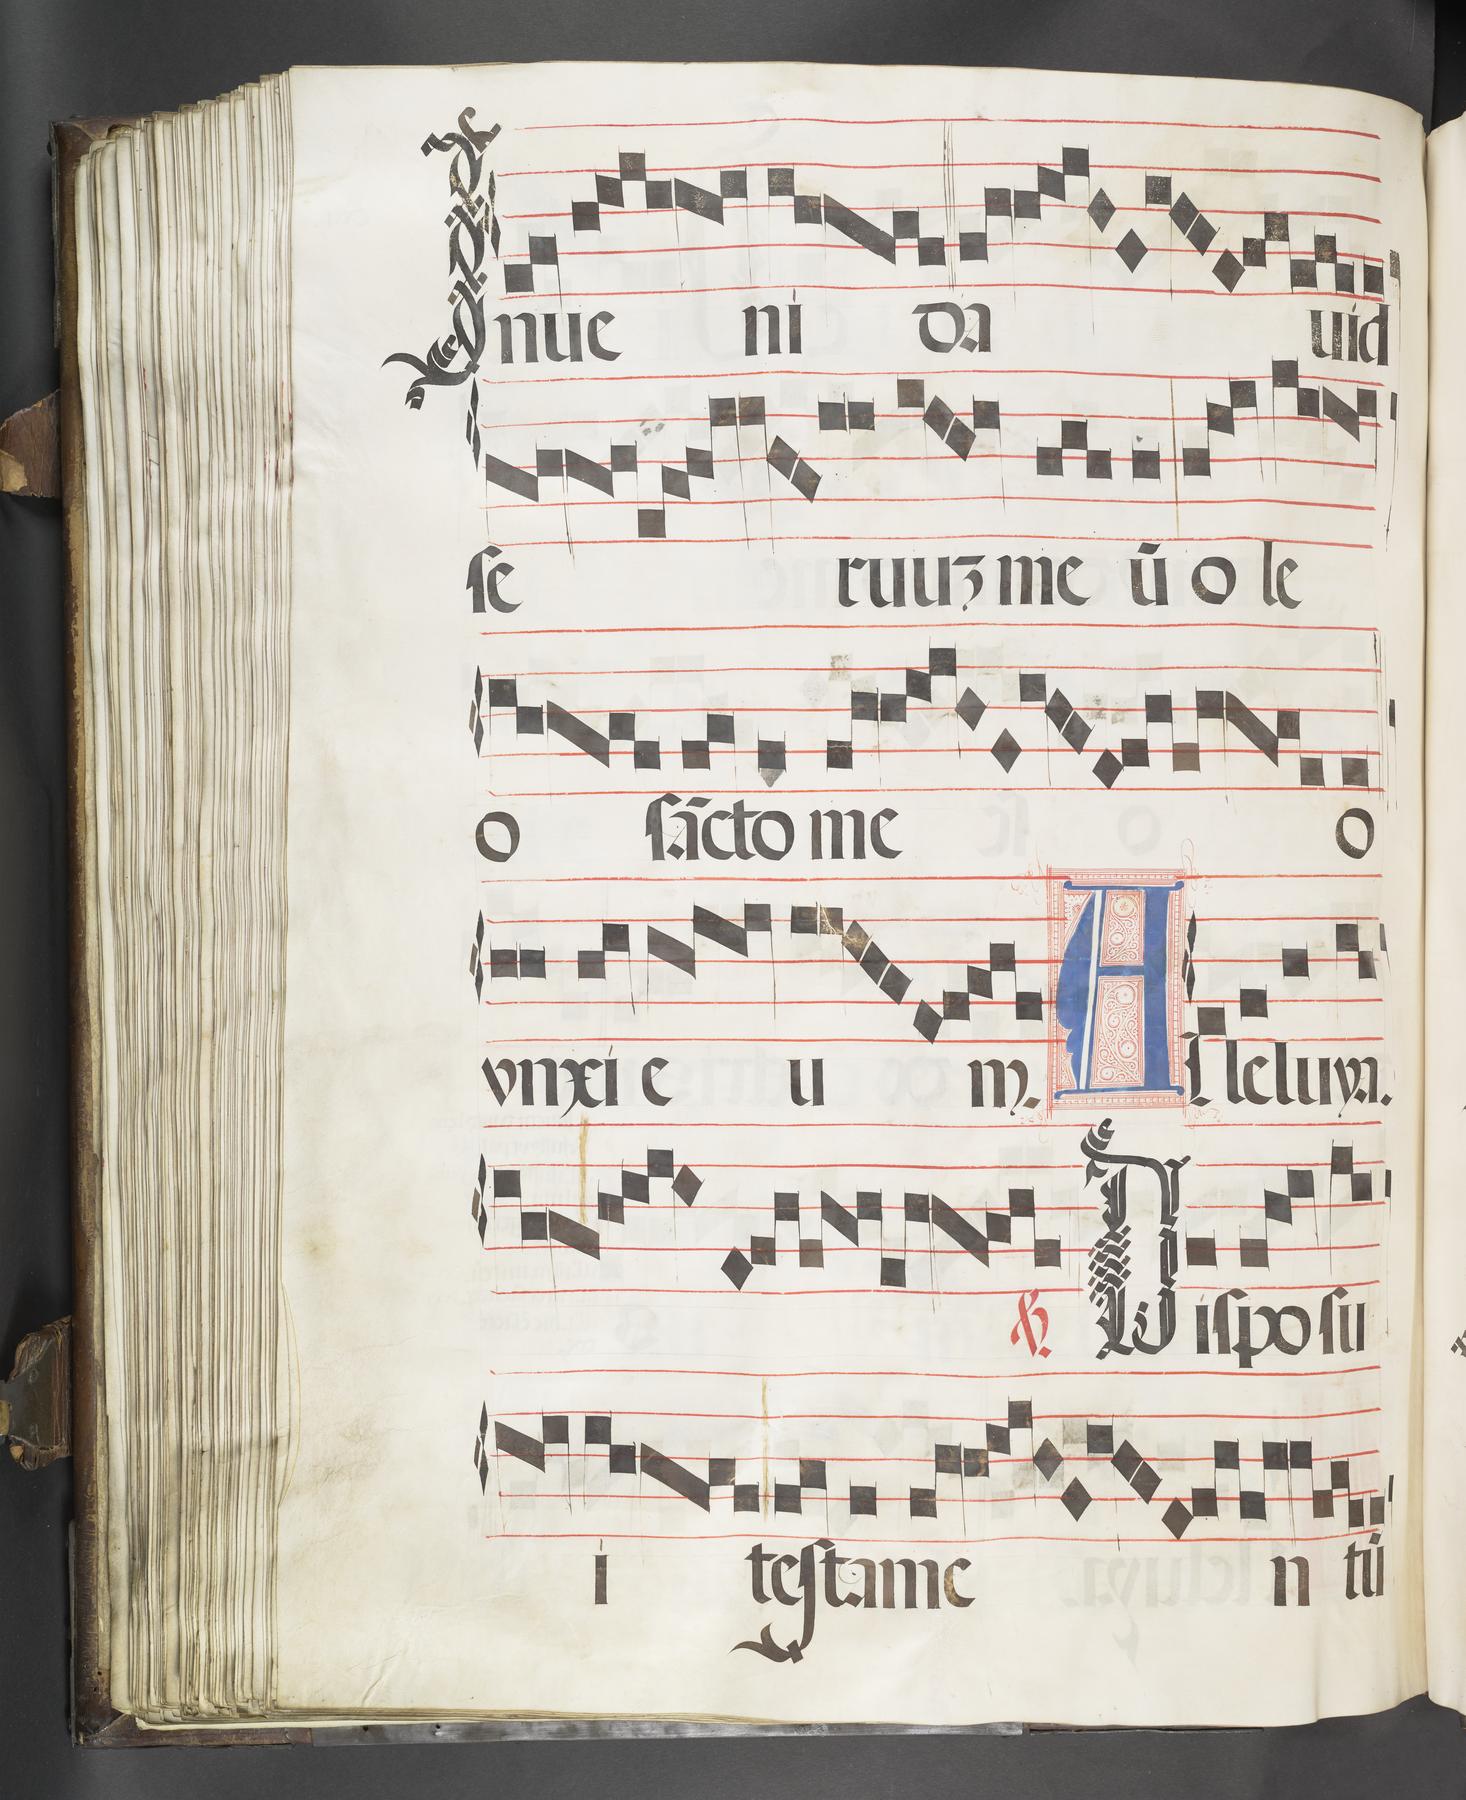 Inue ni da uid
se ruuʒ me ū o le
o sācto me o
vnxi e u m. Alleluya.
℟. Disposu
i testame n tū